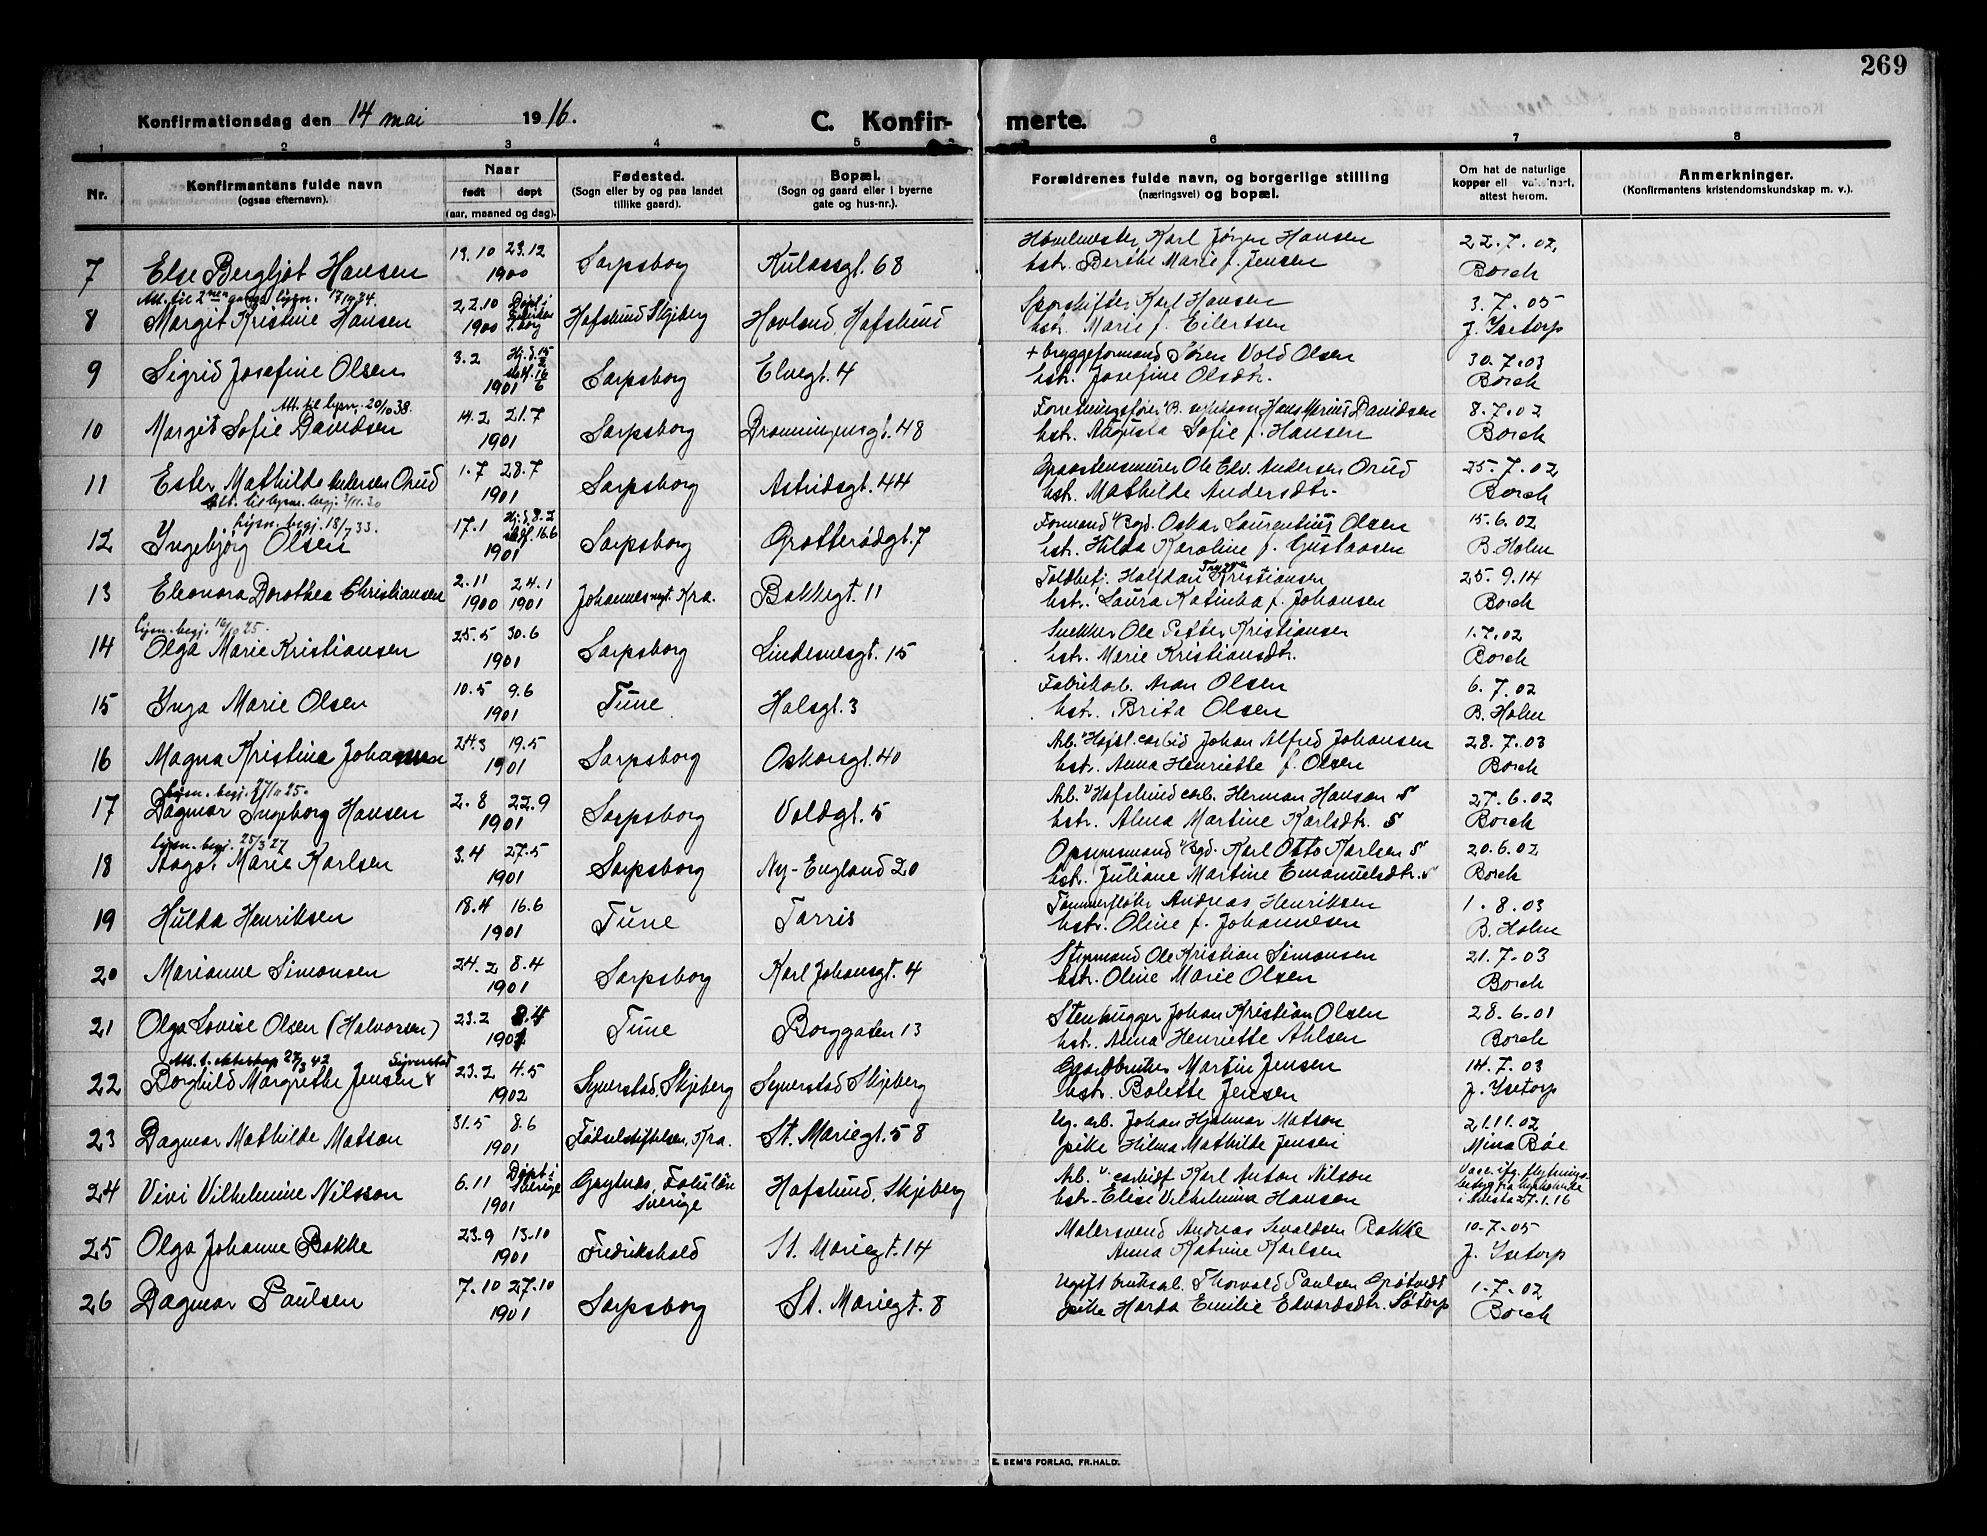 269
Konfirmationsdag den 14 mai 1916. C. Konfir- merte.
1 2 3 4 5 6 7 8
Nr. Konfirmantens fulde navn (ogsaa efternavn). Naar født døpt (aar, maaned og dag). Fødested. (Sogn eller by og paa landet tillike gaard). Bopæl. (Sogn og gaard eller i byerne gate og hus-nr.). Forældrenes fulde navn, og borgerlige stilling (næringsvei) og bopæl. Om hat de naturlige kopper ell. vaksinert, attest herom. Anmerkninger. (Konfirmantens kristendomskundskap m. v.).
13.10 23.12 Høvelmester Karl Jørgen Hansen 22.7.02
7 Else Bergljot Hansen 1900 Sarpsborg Kulaasgt. 68 hstr. Berthe Marie f. Jensen Borch
Att. til 2nen gangs lysn. 22.10 Døpt i Sporskifter Karl Hansen 3.7.05
8 Margit Kristine Hansen 1900 Hafslund Skjeberg Hovland, Hafslund hstr. Marie f. Eilertsen J. Isetorp
3.2 Hj.d. 15/2 + bryggeformand Søren Vold Olsen 30.7.03
9 Sigrid Josefine Olsen 1901 16/6 Sarpsborg Elvegt. 4 hstr. Josefine Olsdtr. Borch
Att. til lysn. 20/10 38. 14.2 21.7 Forretningsfører Hans Marius Davidsen 8.7.02
10 Margit Sofie Davidsen 1901 Sarpsborg Dronningensgt. 48 hstr. Augusta Sofie f. Hansen Borch
1.7 28.7 Ole Edv. Andersen Orud 25.7.02
11 Ester Mathilde Andersen Orud 1901 Sarpsborg Astridsgt. 44 hstr. Mathilde Andersdtr. Borch
Att. til lysn. begj. 7/11.30
Lysn. begj. 18/7 33. 17.1 Hj.d. 8.2 Formand v/Bgd. Oskar Laurentius Olsen 15.6.02
12 Ingebjørg Olsen 1901 16.6 Sarpsborg Grotterødgt. 7 hstr. Hilda Karoline f. Gustavsen B. Holm
2.11 24.1 Toldbetj. Halfdan Kristiansen 25.9.14
13 Eleonora Dorothea Christiansen 1900 1901 Johannesmgt. Kra. Bakkegt. 11 hstr. Laura Katinka f. Johansen Borch
Lysn. begj. 25.5 30.6 Snekker Ole Petter Kristiansen 1.7.02
14 Olga Marie Kristiansen 1901 Sarpsborg Lindesnesgt. 15 hstr. Marie Kristiansdtr. Borch
10.5 9.6 Fabrikarb. Aron Olsen 6.7.02
15 Inga Marie Olsen 1901 Tune Halsgt. 3 hstr. Brita Olsen B. Holm
24.3 19.5 Arb. v Hafsl. carbid Johan Alfred Johansen 28.7.03
16 Magna Kristine Johansen 1901 Sarpsborg Oskarsgt. 40 hstr. Anna Henriette f. Olsen Borch
Lysn. begj. 2.8 22.9 Arb. v Hafslund carb. Herman Hanson S 27.6.02
17 Dagmar Ingeborg Hansen 1901 Sarpsborg Voldgt. 5 hstr. Alma Martine Karlsdtr. S Borch
Lysn. begj. 25/3 27 3.4 27.5 Opsynsmand v/Bgd. Karl Otto Karlsen S 20.6.02
18 Aagot Marie Karlsen 1901 Sarpsborg Ny-England 20 hstr. Juliane Martine Emanuelsdtr. S Borch
18.4 16.6 Tømmerfløter Andreas Henriksen 1.8.03
19 Hulda Henriksen 1901 Tune Torris hstr. Oline f. Johannesen B. Holm
24.2 8.4 Styrmand Ole Kristian Simonsen 21.7.03
20 Marianne Simonsen 1901 Sarpsborg Karl Johansgt. 4 hstr. Oline Marie Olsen Borch
23.2 8.4 Stenhugger Johan Kristian Olsen 28.6.01
21 Olga Lovise Olsen (Halvorsen) 1901 Tune Borggaten 13 hstr. Anna Henriette Ahlsen Borch
Att. t. ekteskap 27/3 42 Synerstad 23.2 4.5 Gaardbruker Martin Jensen 14.7.03
22 Borghild Margrethe Jensen 1902 Synerstad, Skjeberg Synerstad Skjeberg hstr. Bolette Jensen J. Isetorp
31.5 8.6 Ug. arb. Johan Hjalmar Matson 21.11.02
23 Dagmar Mathilde Matson 1901 Fødselsstiftelsen, Kra. St. Mariegt. 58 pike Hilma Mathilde Jensen Mina Bøe
6.11 Døpt i Sverige Arb. v. carbidf. Karl Anton Nilson Vacc. ifg. flytnings-
24 Vivi Vilhelmine Nilsson 1901 Sverige Hafslund, Skjeberg hstr. Elise Vilhelmina Hansen i Avesta 27.1.16
23.9 13.10 Malersvend Andreas Sevaldsen Bakke 10.7.05
25 Olga Johanne Bakke 1901 Fredrikshald St. Mariegt. 14 Anna Katrine Karlsen J. Isetorp
7.10 27.10 Ugift bruksarb. Thorvald Paulsen Grøtvedt 1.7.02
26 Dagmar Paulsen 1901 Sarpsborg St. Mariegt. 8 pike Harda Emilie Edvardsdtr. Søtorp Borch
E. SEM'S FORLAG, FR.HALD.